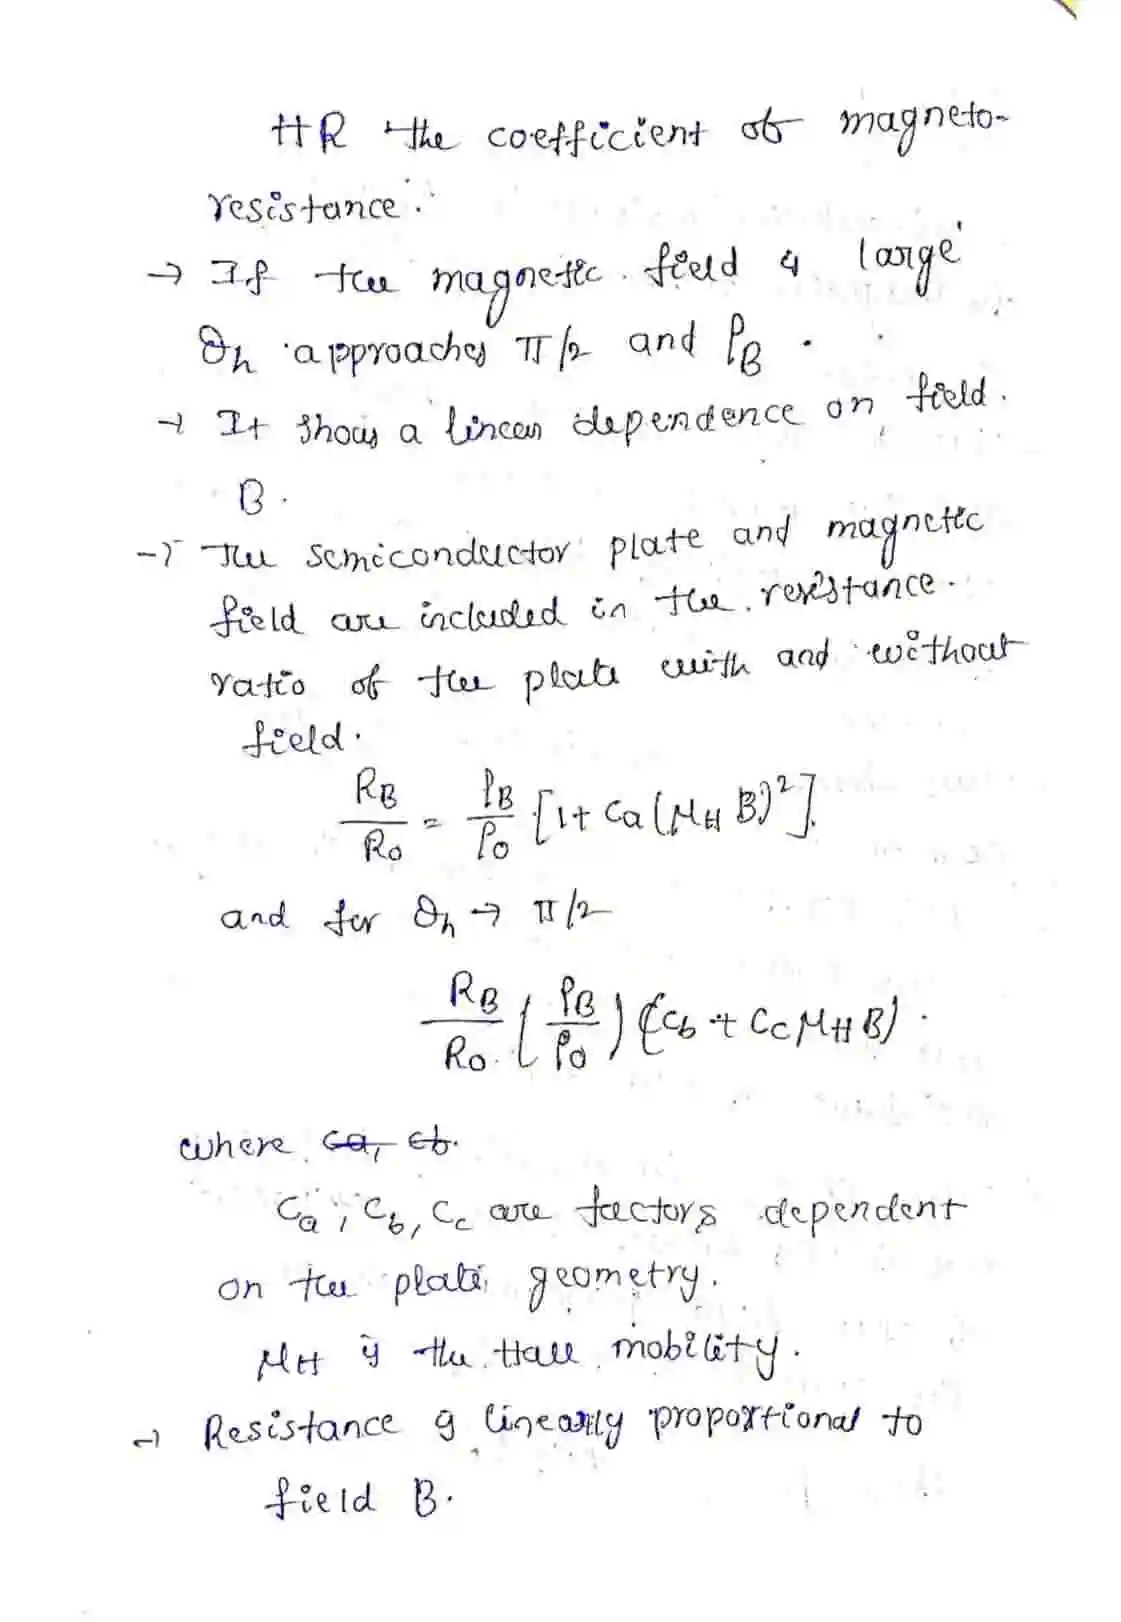 HR the coefficient of magneto-
resistance.
→ If the magnetic field is large
θh approaches π/2 and ρB.
→ It shows a linear dependence on field.
B.
→ The semiconductor plate and magnetic
field are included in the resistance.
ratio of the plate with and without
field.
RB/R0 = ρB/ρ0 [1+ Ca (μH B)²].
and for θh → π/2
RB/R0 (ρB/ρ0) (Cb + Cc μH B).
where ca, cb.
Ca, Cb, Cc are factors dependent
on the plate geometry.
μH is the Hall mobility.
→ Resistance is linearly proportional to
field B.